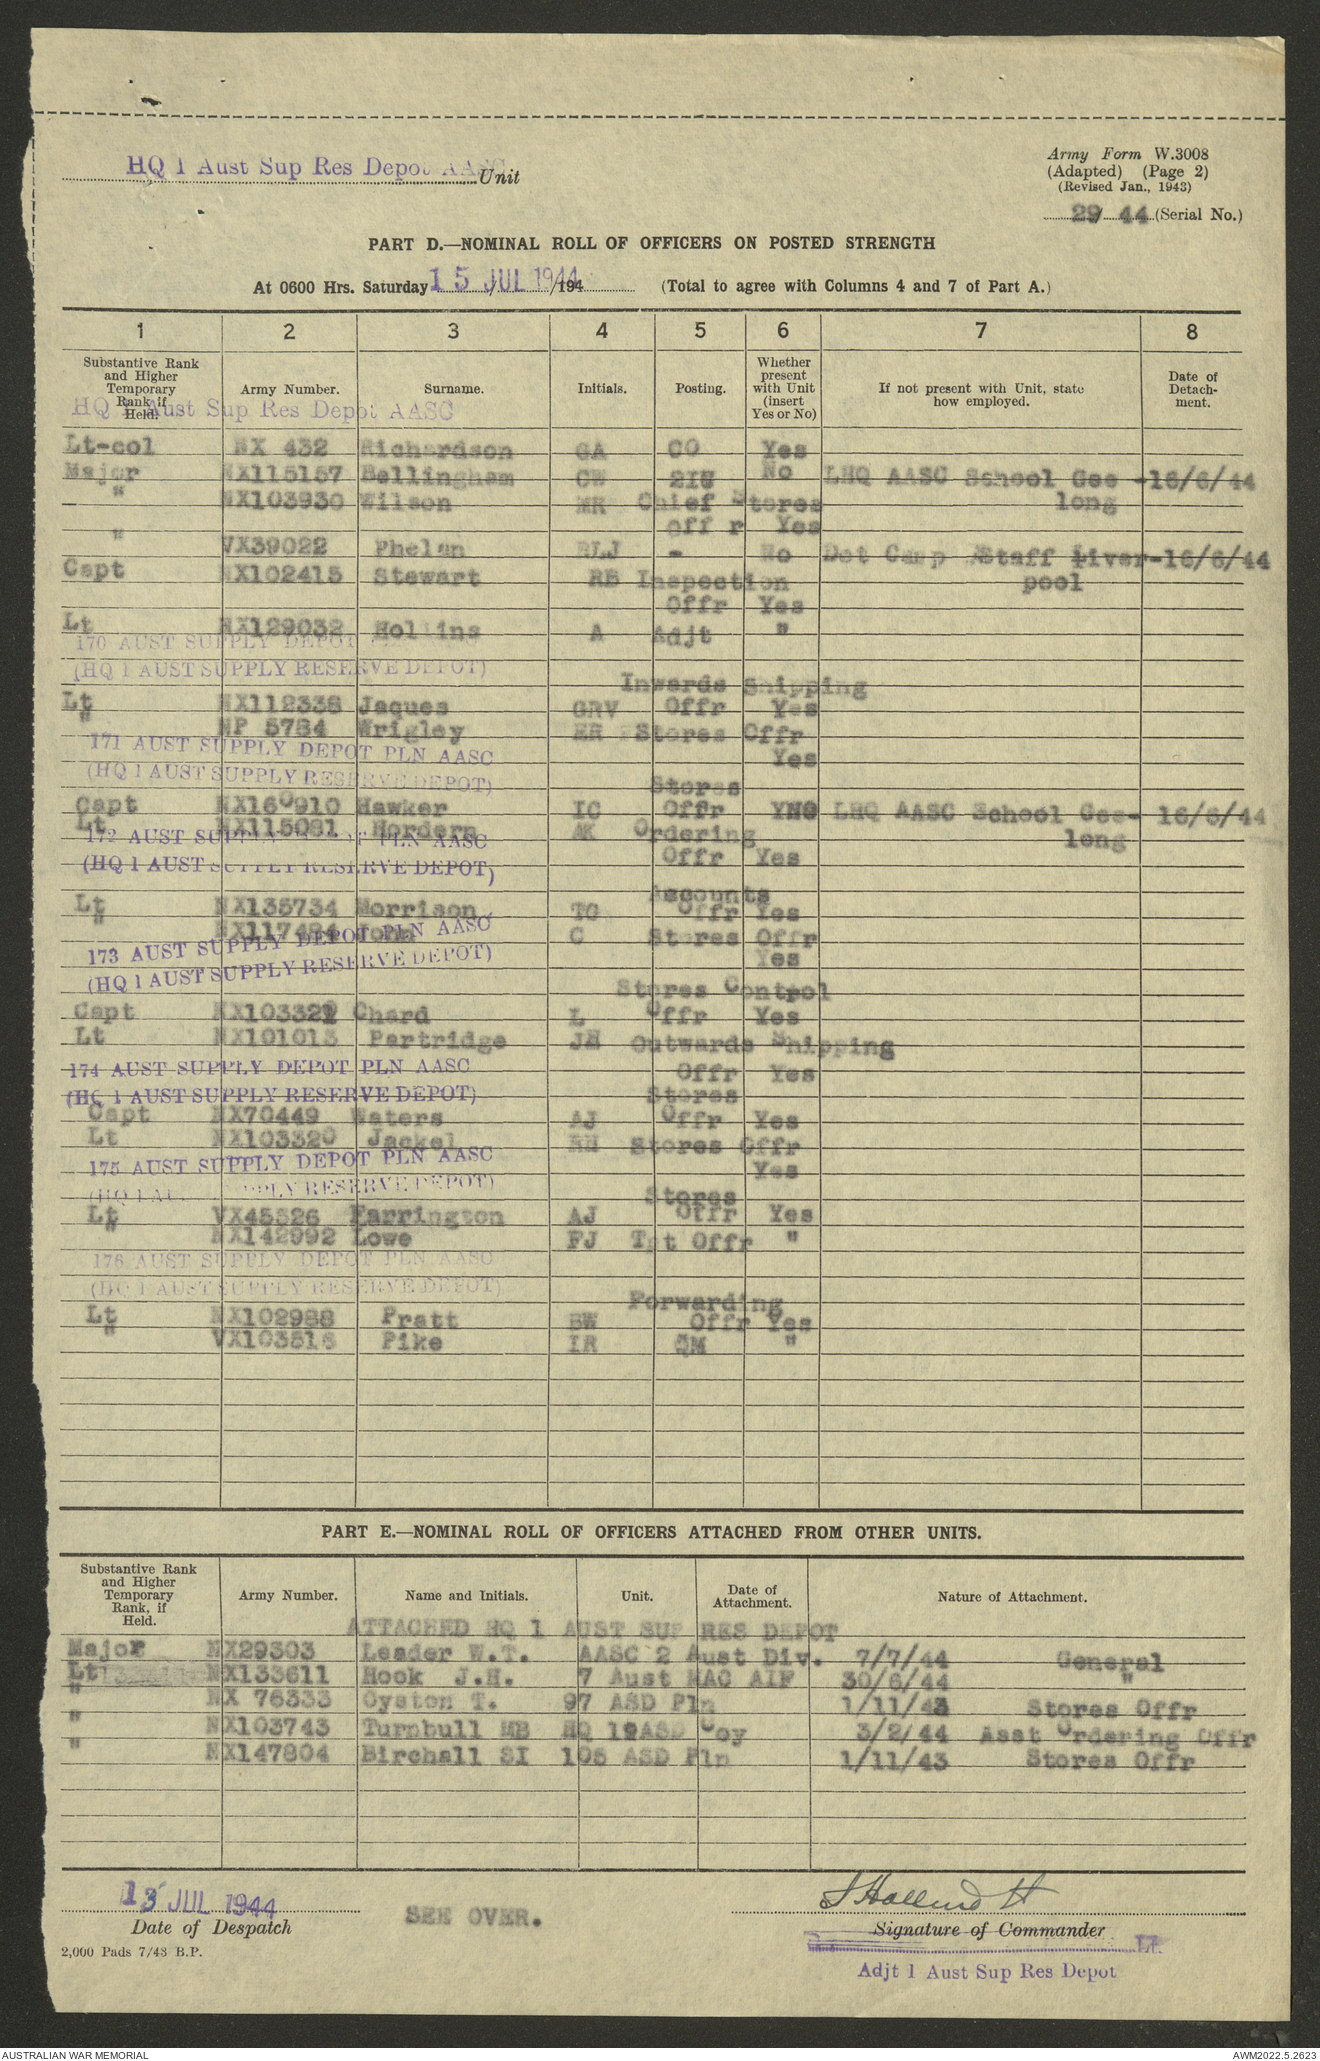 HQ 1 Aust Sup Res Depot AASC Unit
Army Form W.3008
(Adapted) (Page 2)
(Revised Jan., 1943)
29/ 44 (Serial No.)
PART D.—NOMINAL ROLL OF OFFICERS ON POSTED STRENGTH
At 0600 Hrs. Saturday 15 JUL 1944 /194 (Total to agree with Columns 4 and 7 of Part A.)
1 2 3 4 5 6 7 8
Substantive Rank and Higher Temporary Rank if Held. Army Number. Surname. Initials. Posting. Whether present with Unit (insert Yes or No) If not present with Unit, state how employed. Date of Detach-ment.
HQ 1 Aust Sup Res Depot AASC
Lt-col NX 432 Richardson GA CO Yes
Major NX115157 Bellingham CW 2IC No LHQ AASC School Gee -16/6/44
" NX103930 Wilson MR Chief Stores long
off r Yes
" VX39022 Phelan RLJ - No Det Camp Staff Liver-16/6/44
Capt NX102415 Stewart RB Inspection pool
Offr Yes
Lt NX129032 Hollins A Adjt "
170 AUST SUPPLY DEPOT
(HQ 1 AUST SUPPLY RESERVE DEPOT)
Inwards Shipping
Lt NX112338 Jaques GRV Offr Yes
" NP 5784 Wrigley Stores Offr
171 AUST SUPPLY DEPOT PLN AASC Yes
(HQ 1 AUST SUPPLY RESERVE DEPOT)
Stores
Capt NX160910 Hawker IC Offr NO LHQ AASC School Gee- 16/6/44
Lt NX115081 Hordern AK Ordering long
172 AUST SUPPLY DEPOT PLN AASC
Offr Yes
(HQ 1 AUST SUPPLY RESERVE DEPOT)
Accounts
Lt NX135734 Morrison TG Offr Yes
" NX117484 John C Stores Offr
173 AUST SUPPLY DEPOT PLN AASC Yes
(HQ 1 AUST SUPPLY RESERVE DEPOT)
Stores Control
Capt Chard L Offr Yes
Lt NX101013 Partridge JH Outwards Shipping
174 AUST SUPPLY DEPOT PLN AASC Offr Yes
(HQ 1 AUST SUPPLY RESERVE DEPOT) Stores
Capt NX70449 Waters AJ Offr Yes
Lt NX103320 Jackel Stores Offr
175 AUST SUPPLY DEPOT PLN AASC Yes
(HQ 1 AUST SUPPLY RESERVE DEPOT) Stores
Lt VX45526 Farrington AJ Offr Yes
" NX142992 Lowe FJ Tpt Offr "
176 AUST SUPPLY DEPOT PLN AASC
(HQ 1 AUST SUPPLY RESERVE DEPOT)
Forwarding
Lt NX102988 Pratt BW Offr Yes
" VX103516 Pike IR QM "
PART E.—NOMINAL ROLL OF OFFICERS ATTACHED FROM OTHER UNITS.
Substantive Rank and Higher Temporary Rank, if Held. Army Number. Name and Initials. Unit. Date of Attachment. Nature of Attachment.
ATTACHED HQ 1 AUST SUP RES DEPOT
Major NX29303 Leader W.T. AASC 2 Aust Div. 7/7/44 General
Lt NX133611 Hook J.H. 7 Aust MAC AIF 30/6/44 "
" NX 76333 Oyston T. 97 ASD Pln 1/11/43 Stores Offr
" NX103743 Turnbull MB HQ 19ASD Coy 3/2/44 Asst Ordering Offr
" NX147804 Birchall SI 105 ASD Pln 1/11/43 Stores Offr
13 JUL 1944
Date of Despatch
SEE OVER.
Signature of Commander
Lt.
Adjt 1 Aust Sup Res Depot
2,000 Pads 7/43 B.P.
AUSTRALIAN WAR MEMORIAL
AWM2022.5.2623